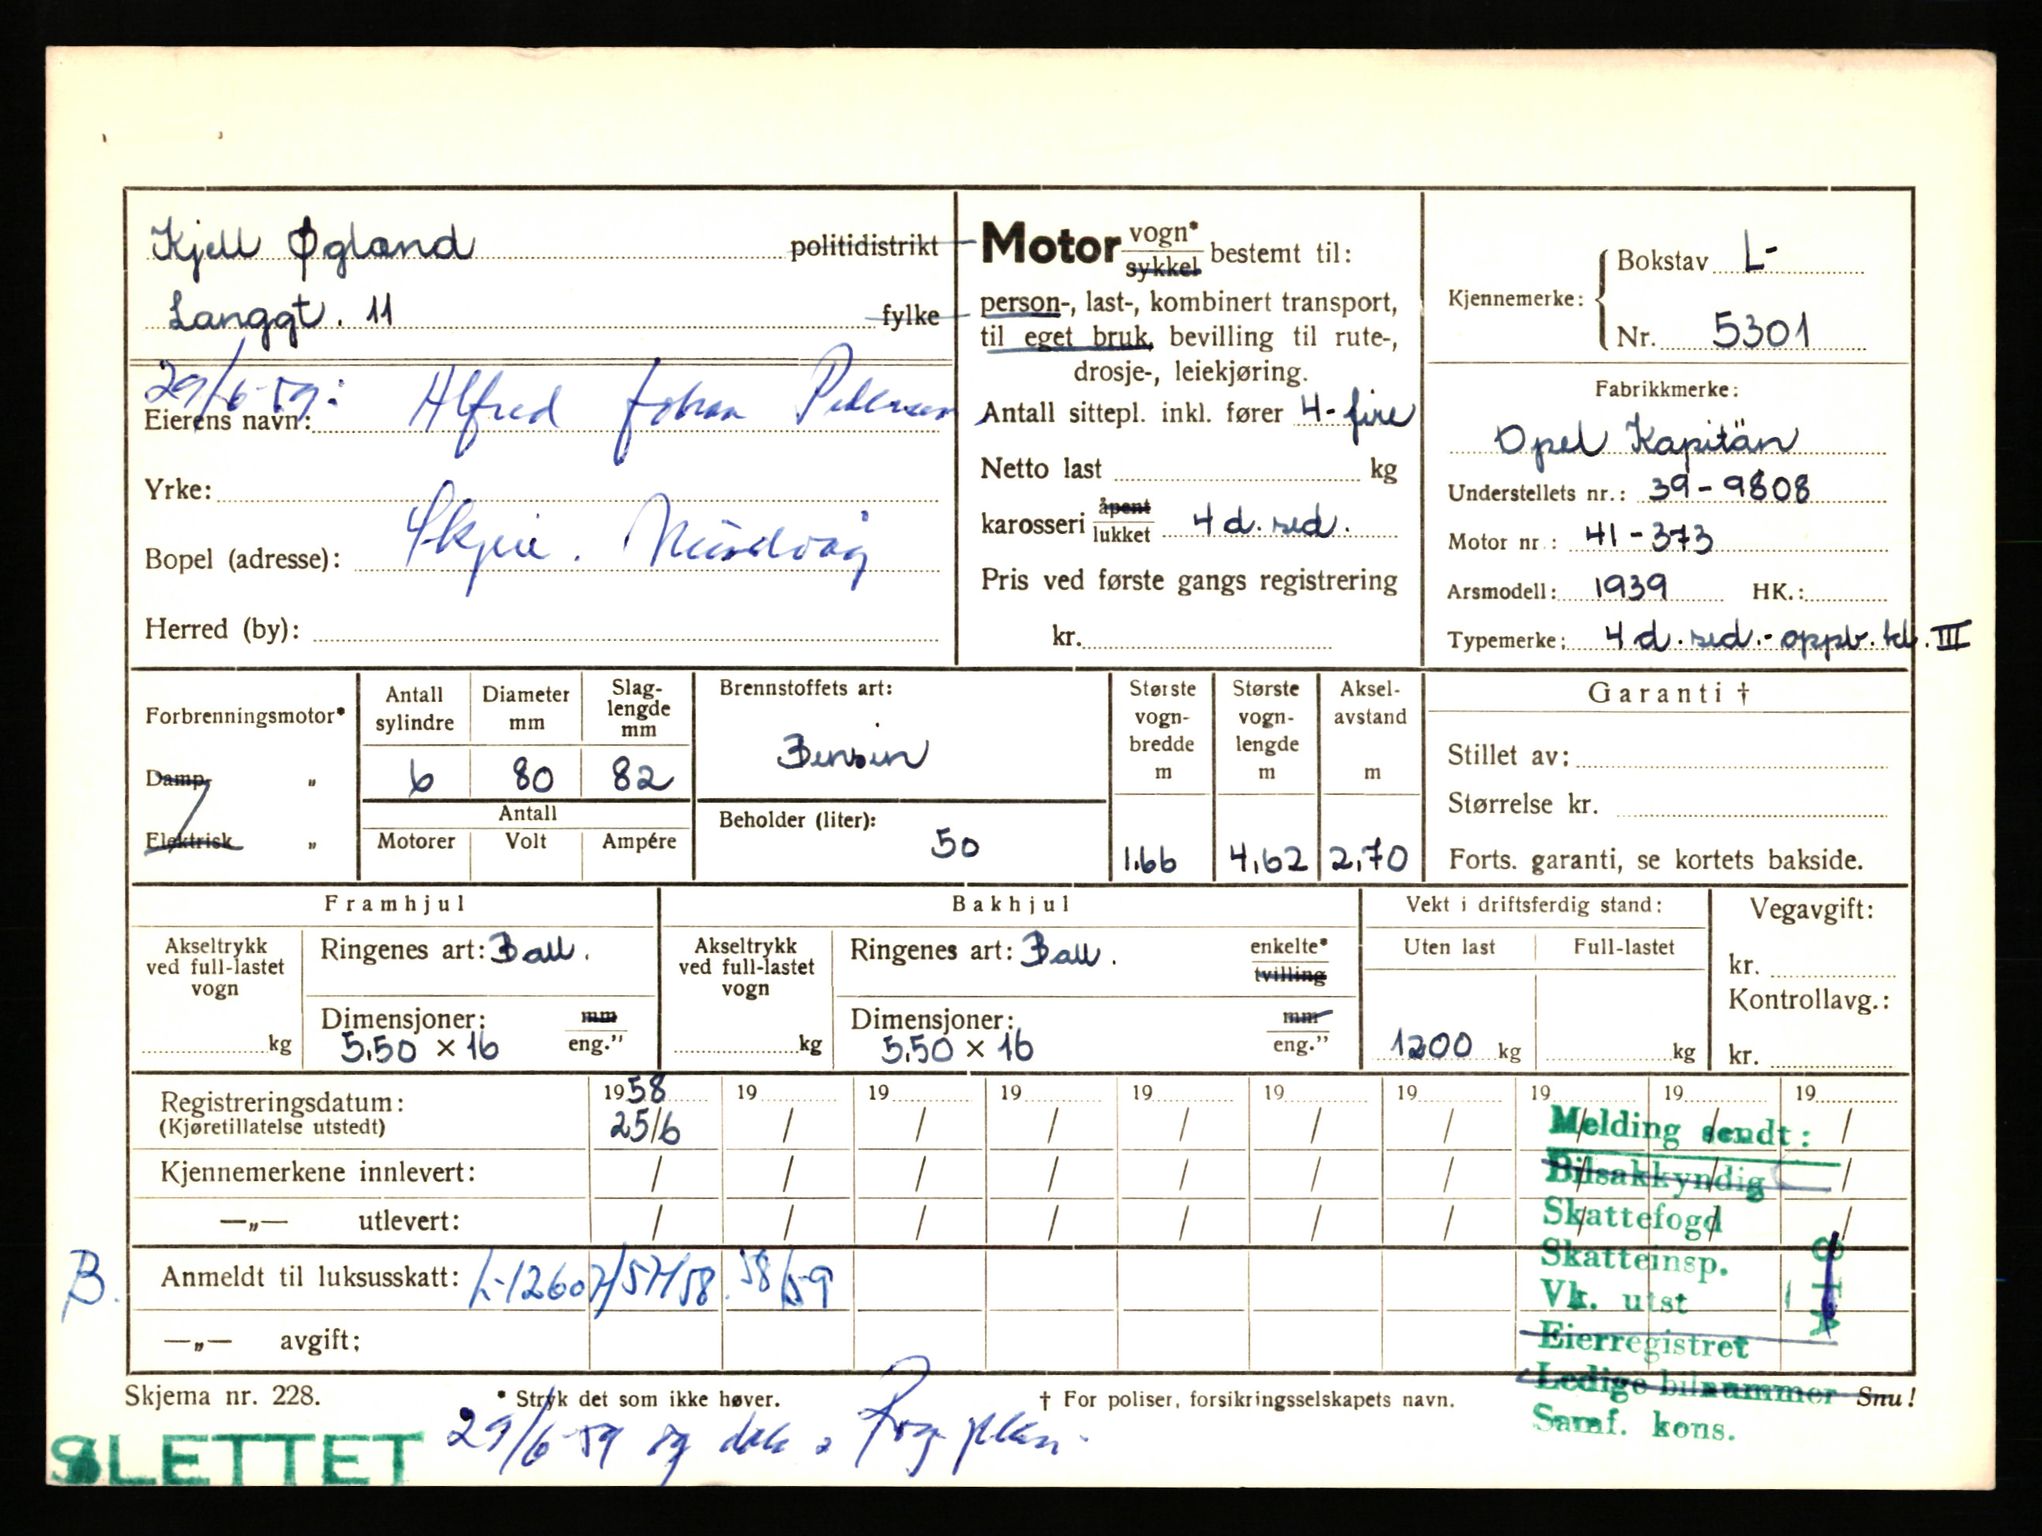 Kjell Øgland politidistrikt
Langgt. 11 fylke
29/6-59: Alfred Johan Pedersen
Eierens navn:
Yrke:
Bopel (adresse):
Herred (by):
Motor vogn* sykkel bestemt til:
person-, last-, kombinert transport,
til eget bruk, bevilling til rute-,
drosje-, leiekjøring.
Antall sittepl. inkl. fører 4-fire
Netto last kg
karosseri åpent lukket 4 d. sed.
Pris ved første gangs registrering
kr.
Kjennemerke: Bokstav L-
Nr. 5301
Fabrikkmerke:
Opel Kapitän
Understellets nr.: 39-9808
Motor nr.: 41-373
Arsmodell: 1939 HK.:
Typemerke: 4 d. sed.- oppb. kl. III
Forbrenningsmotor*
Damp "
Elektrisk "
Antall sylindre
6
Diameter mm
80
Slag-lengde mm
82
Antall
Motorer Volt Ampére
Brennstoffets art:
Bensin
Beholder (liter):
50
Største vogn-bredde m
1.66
Største vogn-lengde m
4,62
Aksel-avstand m
2,70
Garanti †
Stillet av:
Størrelse kr.
Forts. garanti, se kortets bakside.
Framhjul
Akseltrykk ved full-lastet vogn
kg
Ringenes art: Ball.
Dimensjoner: mm
5.50 × 16 eng."
Bakhjul
Akseltrykk ved full-lastet vogn
kg
Ringenes art: Ball. enkelte* tvilling
Dimensjoner: mm
5.50 × 16 eng."
Vekt i driftsferdig stand:
Uten last Full-lastet
1200 kg kg
Vegavgift:
kr.
Kontrollavg.:
kr.
Registreringsdatum: 1958 19 19 19 19 19 19 19 19 19
(Kjøretillatelse utstedt) 25/6 / / / / / / / / /
Kjennemerkene innlevert: / / / / / / / / / /
—„— utlevert: / / / / / / / / / /
B. Anmeldt til luksusskatt: L-12607/57/58. 58/59
—„— avgift:
Melding sendt:
Bilsakkyndig
Skattefogd
Skatteinsp.
Vk. utst
Eierregistret
Ledige bilnummer
Samf. kons.
Skjema nr. 228. * Stryk det som ikke høver. † For poliser, forsikringsselskapets navn. Snu!
SLETTET 29/6-59